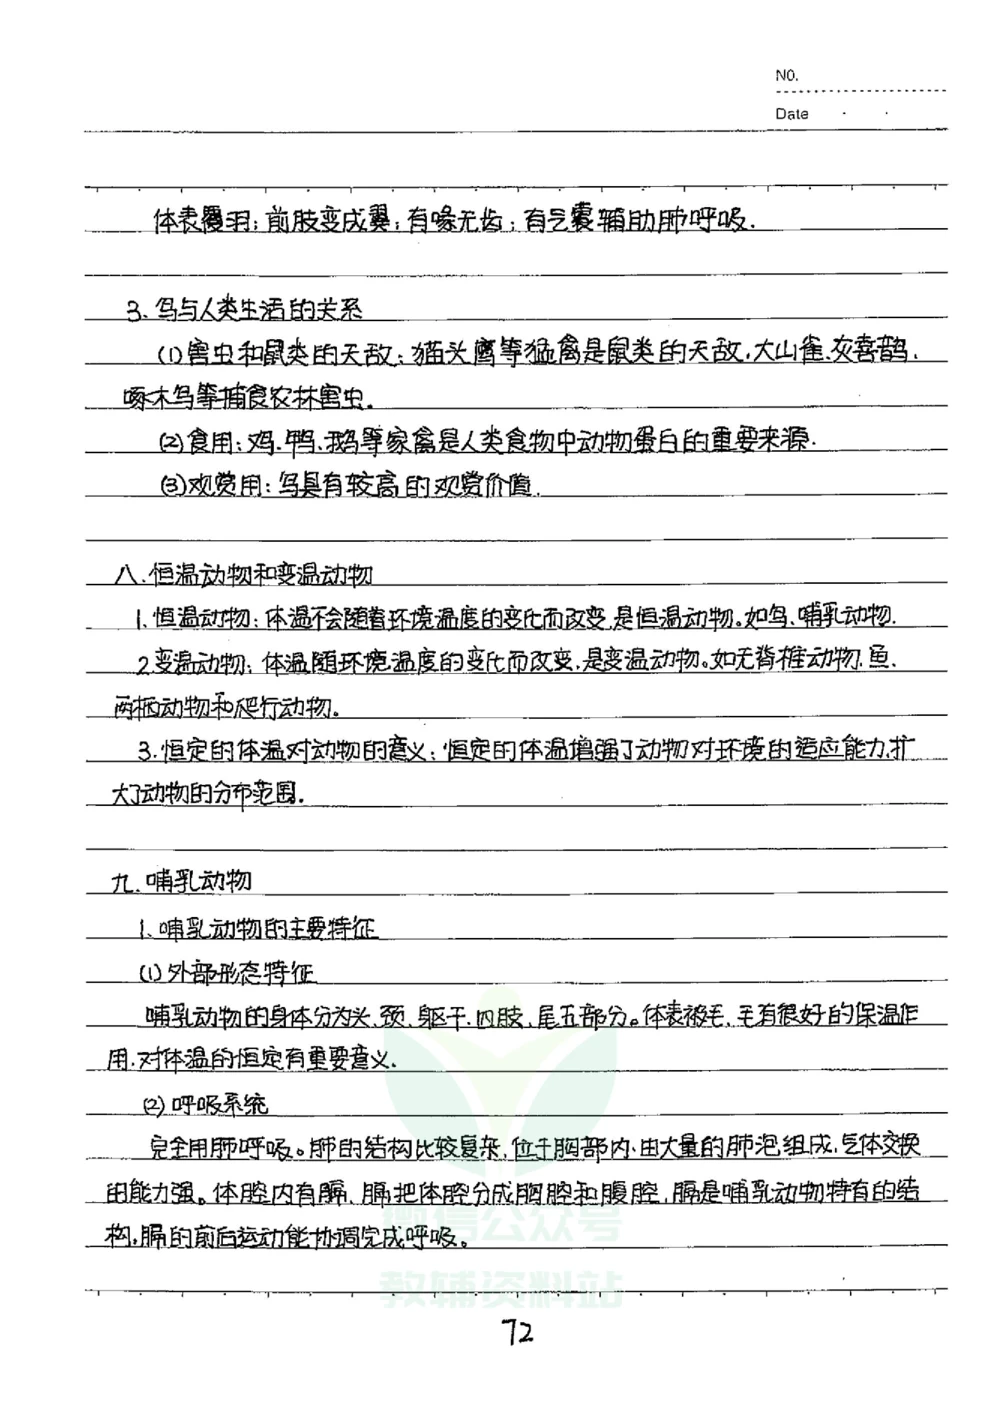 NO.
Date
体表覆羽；前肢变成翼；有喙无齿；有气囊辅助肺呼吸.
3、鸟与人类生活的关系
(1)害虫和鼠类的天敌：猫头鹰等猛禽是鼠类的天敌,大山雀、灰喜鹊、
啄木鸟等捕食农林害虫.
(2)食用：鸡、鸭、鹅等家禽是人类食物中动物蛋白的重要来源.
(3)观赏用：鸟具有较高的观赏价值.
八、恒温动物和变温动物
1、恒温动物：体温不会随着环境温度的变化而改变,是恒温动物。如鸟、哺乳动物.
2、变温动物：体温随环境温度的变化而改变,是变温动物。如无脊椎动物、鱼、
两栖动物和爬行动物。
3、恒定的体温对动物的意义：恒定的体温增强了动物对环境的适应能力,扩
大了动物的分布范围.
九、哺乳动物
1、哺乳动物的主要特征
(1)外部形态特征
哺乳动物的身体分为头、颈、躯干、四肢、尾五部分。体表被毛,毛有很好的保温作
用,对体温的恒定有重要意义.
(2)呼吸系统
完全用肺呼吸。肺的结构比较复杂,位于胸部内,由大量的肺泡组成,气体交换
的能力强。体腔内有膈,膈把体腔分成胸腔和腹腔,膈是哺乳动物特有的结
构,膈的前后运动能协调完成呼吸。
微信公众号
教辅资料站
72